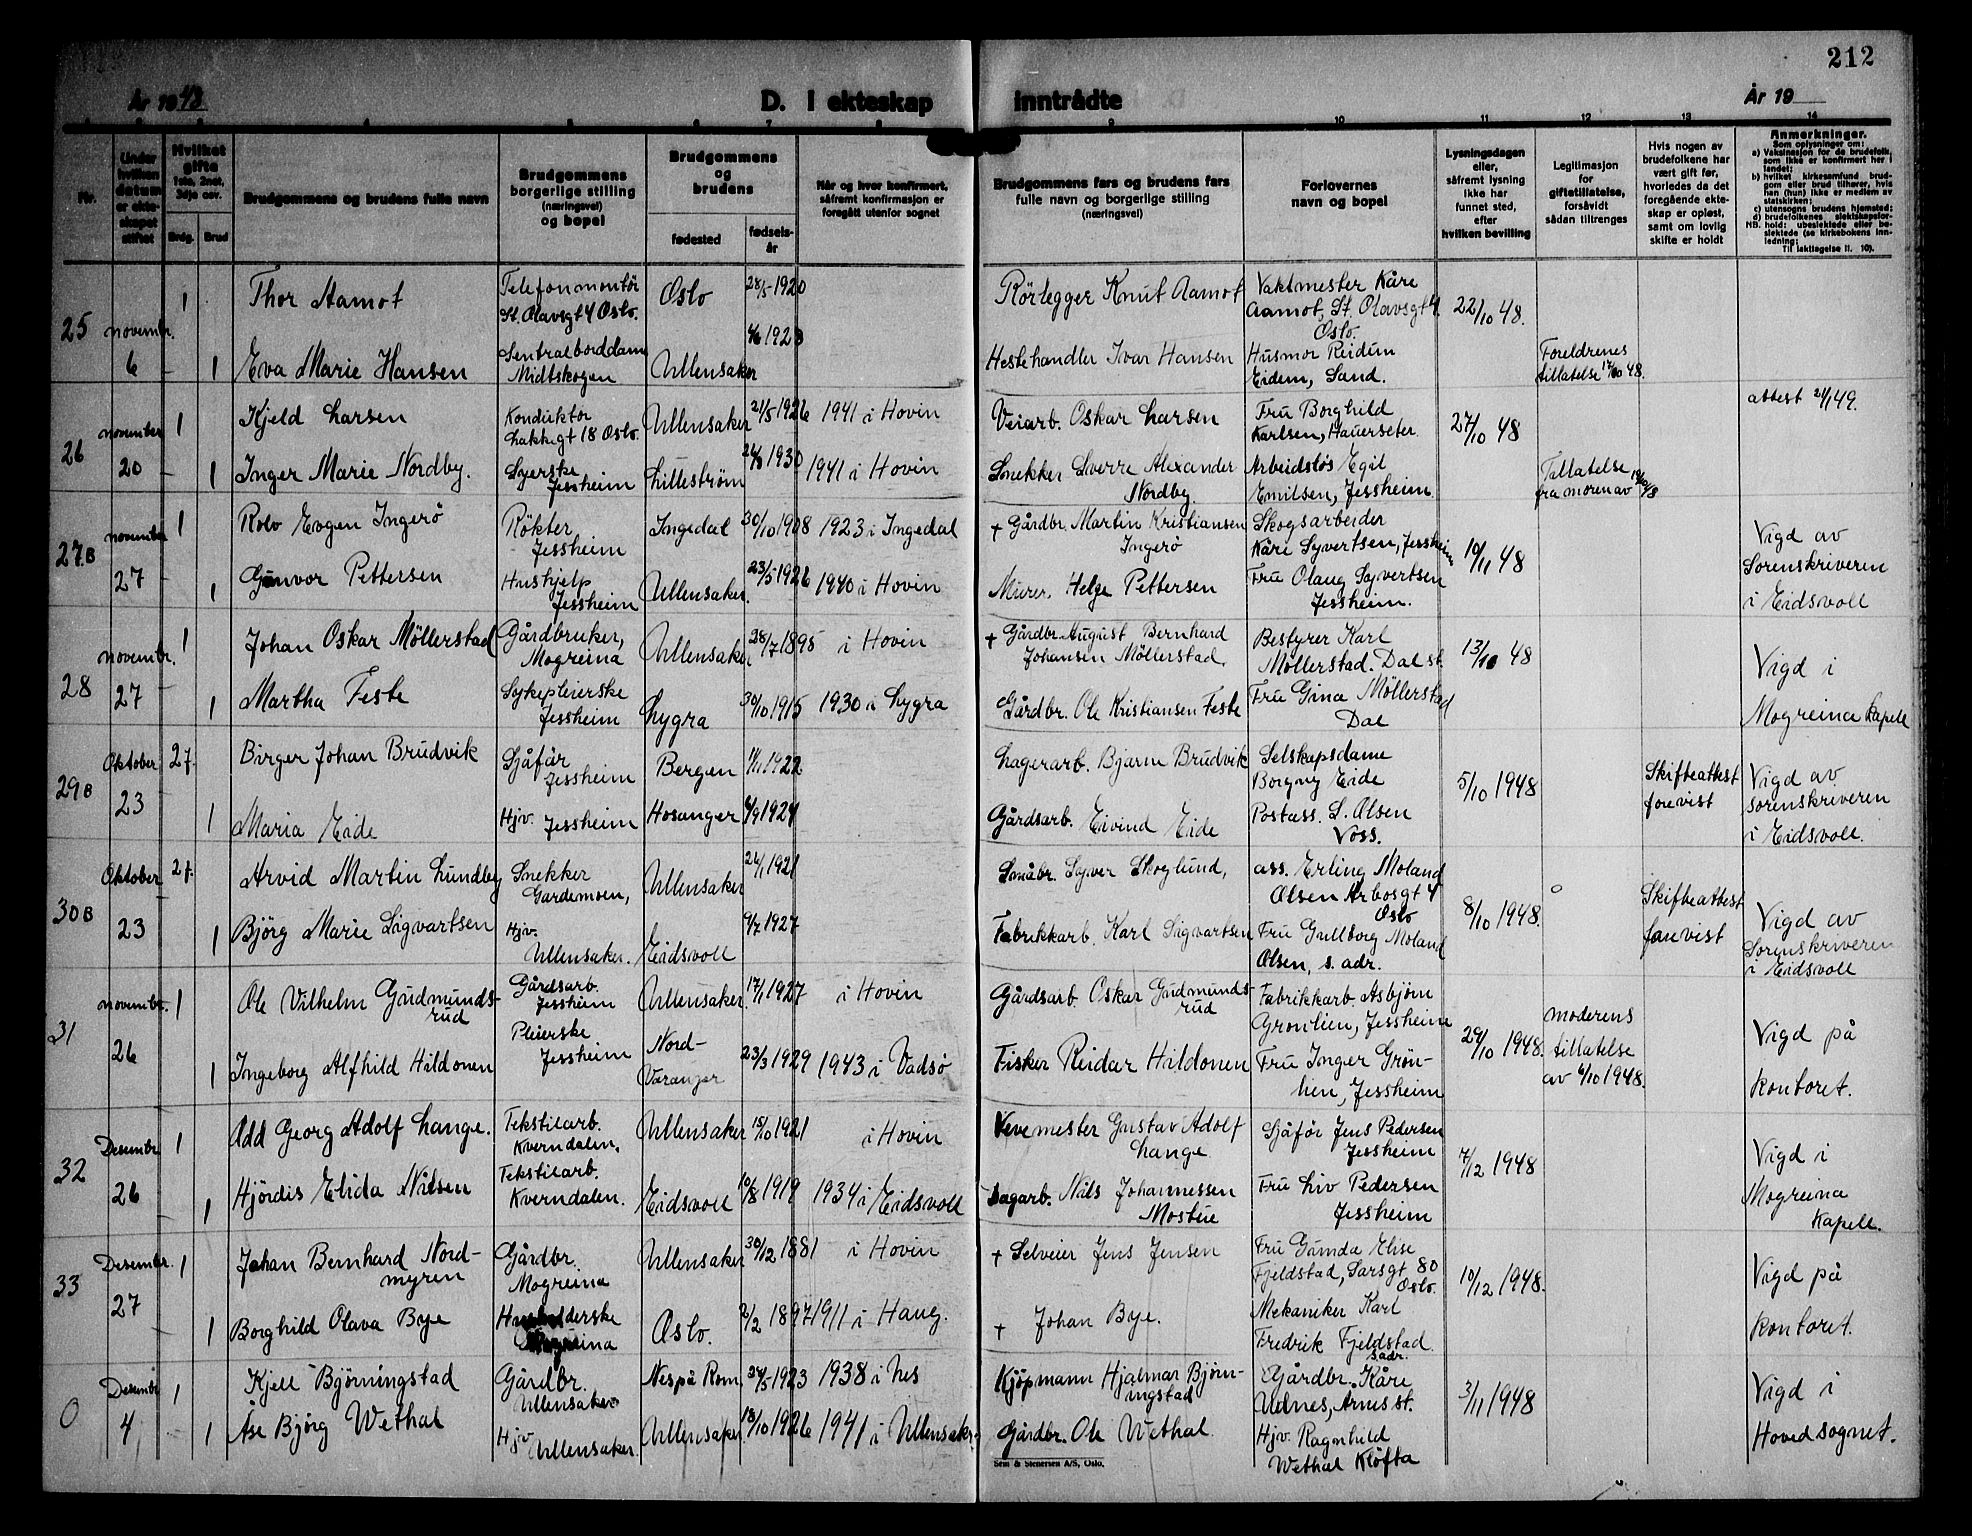 212
År 1948
D. I ekteskap inntrådte
År 19
1 2 3 4 5 6 7 8 9 10 11 12 13 14
Nr.
Under hvilken datum er ekteskapet stiftet
Hvilket gifte 1ste, 2net, 3dje osv.
Brdg. Brud
Brudgommens og brudens fulle navn
Brudgommens borgerlige stilling (næringsvei) og bopel
Brudgommens og brudens
fødested
fødselsår
Når og hvor konfirmert, såfremt konfirmasjon er foregått utenfor sognet
Brudgommens fars og brudens fars fulle navn og borgerlige stilling (næringsvei)
Forlovernes navn og bopel
Lysningsdagen eller, såfremt lysning ikke har funnet sted, efter hvilken bevilling
Legitimasjon for giftetillatelse, forsåvidt sådan tiltrenges
Hvis nogen av brudefolkene har vært gift før, hvorledes da det foregående ekteskap er opløst, samt om lovlig skifte er holdt
Anmerkninger.
Som oplysninger om:
a) Vaksinasjon for de brudefolk, som ikke er konfirmert her i landet;
b) hvilket kirkesamfund brudgom eller brud tilhører, hvis han (hun) ikke er medlem av statskirken;
c) utensogns brudens hjemsted;
d) brudefolkenes slektskapsforhold: ubeslektede eller beslektede (se kirkebokens innledning;
NB.
Til iakttagelse II. 10).
25 novembr. 6 1 Thor Aamot Telefonmontör St. Olavsgt 4 Oslo. Oslo 28/5-1920 Rörlegger Knut Aamot Vaktmester Kåre Aamot, St. Olavsgt 4. Oslo. 22/10 48.
1 Eva Marie Hansen Sentralborddame Midtskogen Ullensaker Hestehandler Ivar Hansen Husmor Reidun Eidem, Sand. Foreldrenes tillatelse 17/10 48.
26 november 20 1 Kjeld Larsen Konduktör 18 Oslo. Ullensaker 21/5 1926 1941 i Hovin Veiarb. Oskar Larsen Fru Borghild Karlsen, Hauerseter. 27/10 48 attest 21/1 49.
1 Inger Marie Nordby. Syerske Jessheim Lilleström 1930 1941 i Hovin Snekker Sverre Alexander Nordby. Arbeidslös Egil Emilsen, Jessheim Tillatelse fra moren av
27B november 27 1 Rolv Evgen Ingerö Rökter Jessheim Ingedal 30/10 1908 1923 i Ingedal + Gårdbr. Martin Kristiansen Ingerö Skogsarbeider Kåre Syvertsen, Jessheim 10/11 48 Vigd av Sorenskriveren i Eidsvoll
1 Gunvor Pettersen Hushjelp Jessheim Ullensaker. 23/5 1926 1940 i Hovin Murer. Helge Pettersen Fru Olaug Syvertsen Jessheim.
28 novembr. 27 1 Johan Oskar Möllerstad Gårdbruker, Mogreina Ullensaker 28/7 1895 i Hovin + Gårdbr. August Bernhard Johansen Möllerstad. Bestyrer Karl Möllerstad. Dal st. 13/10 48 Vigd i Mogreina Kapell
1 Martha Feste Sykepleierske Jessheim Lygra 30/10 1915 1930 i Lygra Gårdbr. Ole Kristiansen Feste Fru Gina Möllerstad Dal
29B Oktober 23 2f. Birger Johan Brudvik Sjåför Jessheim Bergen 1922 Lagerarb. Bjarne Brudvik Selskapsdame Borgny Eide 5/10 1948 Skifteattest forevist Vigd av sorenskriveren i Eidsvoll.
1 Maria Eide Hjv. Jessheim Hosanger 1924 Gårdsarb. Eivind Eide Postass. S. Olsen Voss.
30B Oktober 23 2f. Arvid Martin Lundby Snekker Gardemoen, Ullensaker 24/1 1921 Småbr. Syver Skoglund, ass. Erling Moland Olsen Arbosgt 4 Oslo 8/10 1948. Skifteattest forevist Vigd av Sorenskriveren i Eidsvoll
1 Björg Marie Sigvartsen Hjv. Ullensaker. Eidsvoll 9/7 1927 Fabrikkarb. Karl Sigvartsen Fru Gullborg Moland Olsen, s. adr.
31 novembr. 26 1 Ole Vilhelm Gudmundsrud Gårdsarb. Jessheim Ullensaker 17/1 1927 i Hovin Gårdsarb. Oskar Gudmundsrud Fabrikkarb. Asbjörn Grönlien, Jessheim 29/10 1948. moderens tillatelse av 6/10 1948. Vigd på kontoret.
1 Ingeborg Alfhild Hildonen Pleierske Jessheim Nord-Varanger 23/3 1929 1943 i Vadsö Fisker Reidar Hildonen Fru Inger Grönlien, Jessheim
32 Desembr. 26 1 Odd Georg Adolf Lange. Tekstilarb. Kverndalen. Ullensaker 15/10 1921 i Hovin Vevemester Gustav Adolf Lange Sjåför Jens Pedersen Jessheim 7/12 1948 Vigd i Mogreina Kapell.
1 Hjördis Elida Nilsen Tekstilarb. Kverndalen. Eidsvoll 10/8 1919 1934 i Eidsvoll Sagarb. Nils Johannessen Mostue Fru Liv Pedersen Jessheim
33 Desembr. 27 1 Johan Bernhard Nordmyren Gårdbr. Mogreina Ullensaker 30/12 1881 i Hovin + Selveier Jens Jensen Fru Gunda Elise Fjeldstad, Sarsgt 80 Oslo. 10/12 1948. Vigd på kontoret.
1 Borghild Olava Bye Husholderske Mogreina Oslo. 2/2 1897 1911 i Haug. + Johan Bye. Mekaniker Karl Fredrik Fjeldstad. s adr.
0 Desembr 4 1 Kjell Björningstad Gårdbr. Ullensaker Nes på Rom. 1923 1938 i Nes Kjöpmann Hjalmar Björningstad Gårdbr. Kåre Udnes, Årnes st. 3/11 1948 Vigd i Hovedsognet.
1 Åse Björg Wethal Hjv. Ullensaker. Ullensaker 18/10 1926 1941 i Ullensaker Gårdbr. Ole Wethal. Hjv. Ragnhild Wethal Klöfta
Sem & Stenersen A/S, Oslo.